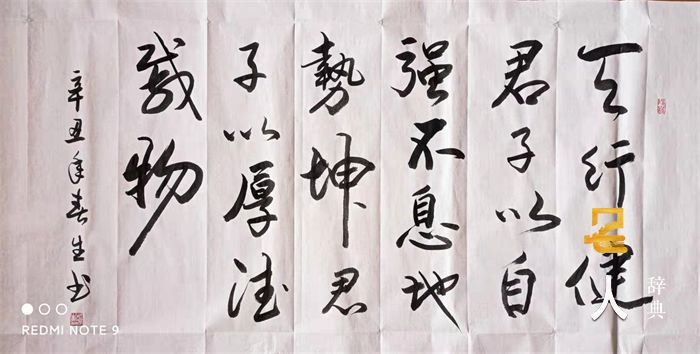 天行健
君子以自
强不息地
勢坤君
子以厚德
载物
辛丑年春生书
REDMI NOTE 9
名人
辞典